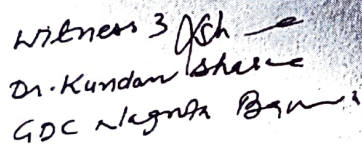 Witness 3
Dr. Kundan Sharma
GDC Nagrota